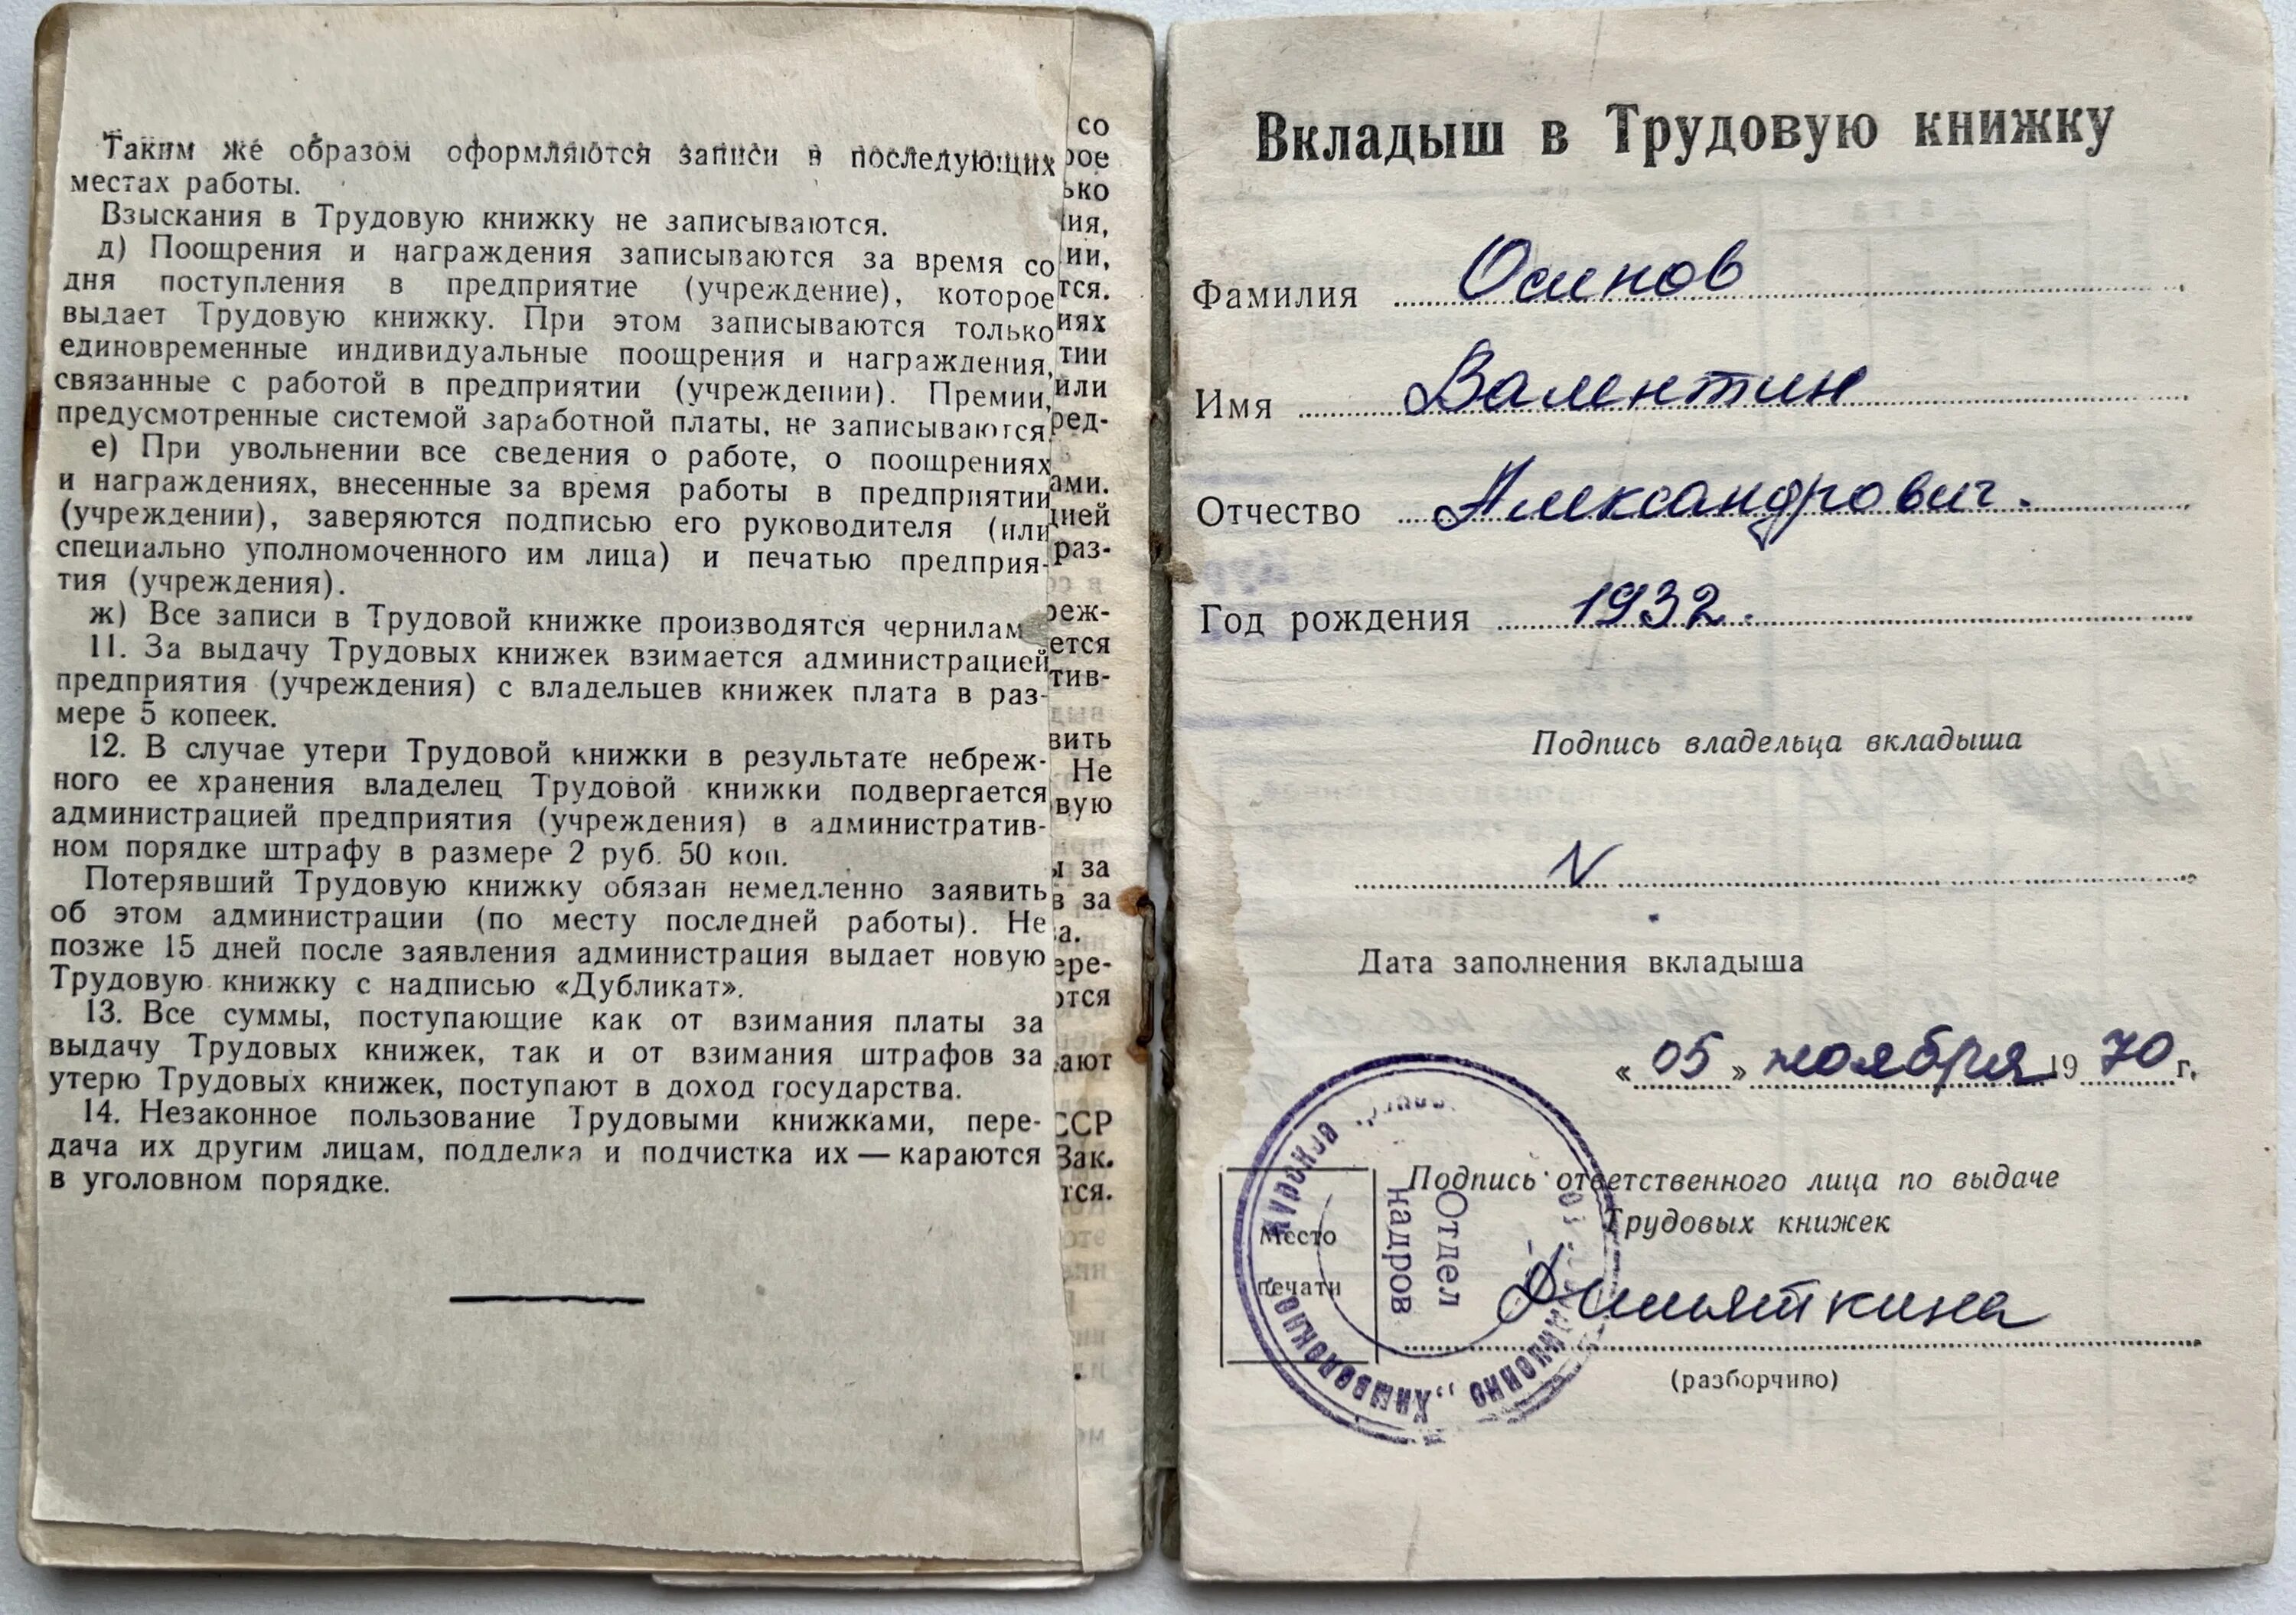 Таким же образом оформляются записи в последующих
местах работы.
Взыскания в Трудовую книжку не записываются.
д) Поощрения и награждения записываются за время со
дня поступления в предприятие (учреждение), которое
выдает Трудовую книжку. При этом записываются только
единовременные индивидуальные поощрения и награждения,
связанные с работой в предприятии (учреждении). Премии,
предусмотренные системой заработной платы, не записываются.
е) При увольнении все сведения о работе, о поощрениях
и награждениях, внесенные за время работы в предприятии
(учреждении), заверяются подписью его руководителя (или
специально уполномоченного им лица) и печатью предприя-
тия (учреждения).
ж) Все записи в Трудовой книжке производятся чернилам
11. За выдачу Трудовых книжек взимается администрацией
предприятия (учреждения) с владельцев книжек плата в раз-
мере 5 копеек.
12. В случае утери Трудовой книжки в результате небреж-
ного ее хранения владелец Трудовой книжки подвергается
администрацией предприятия (учреждения) в административ-
ном порядке штрафу в размере 2 руб. 50 коп.
Потерявший Трудовую книжку обязан немедленно заявить
об этом администрации (по месту последней работы). Не
позже 15 дней после заявления администрация выдает новую
Трудовую книжку с надписью «Дубликат».
13. Все суммы, поступающие как от взимания платы за
выдачу Трудовых книжек, так и от взимания штрафов за
утерю Трудовых книжек, поступают в доход государства.
14. Незаконное пользование Трудовыми книжками, пере-
дача их другим лицам, подделка и подчистка их — караются
в уголовном порядке.
со
рое
ько
ия,
ии,
тся.
иях
тии
или
ред-
ами.
цией
раз-
реж-
ется
тив-
вить
Не
овую
ы за
в за
ва.
ере-
ются
ают
ССР
Зак.
тся.
Вкладыш в Трудовую книжку
Фамилия Осипов
Имя Валентин
Отчество Александрович.
Год рождения 1932.
Подпись владельца вкладыша
Дата заполнения вкладыша
«05» ноября 1970 г.
Подпись ответственного лица по выдаче
Трудовых книжек
Место
печати
Отдел
кадров
„Химволокно
(разборчиво)